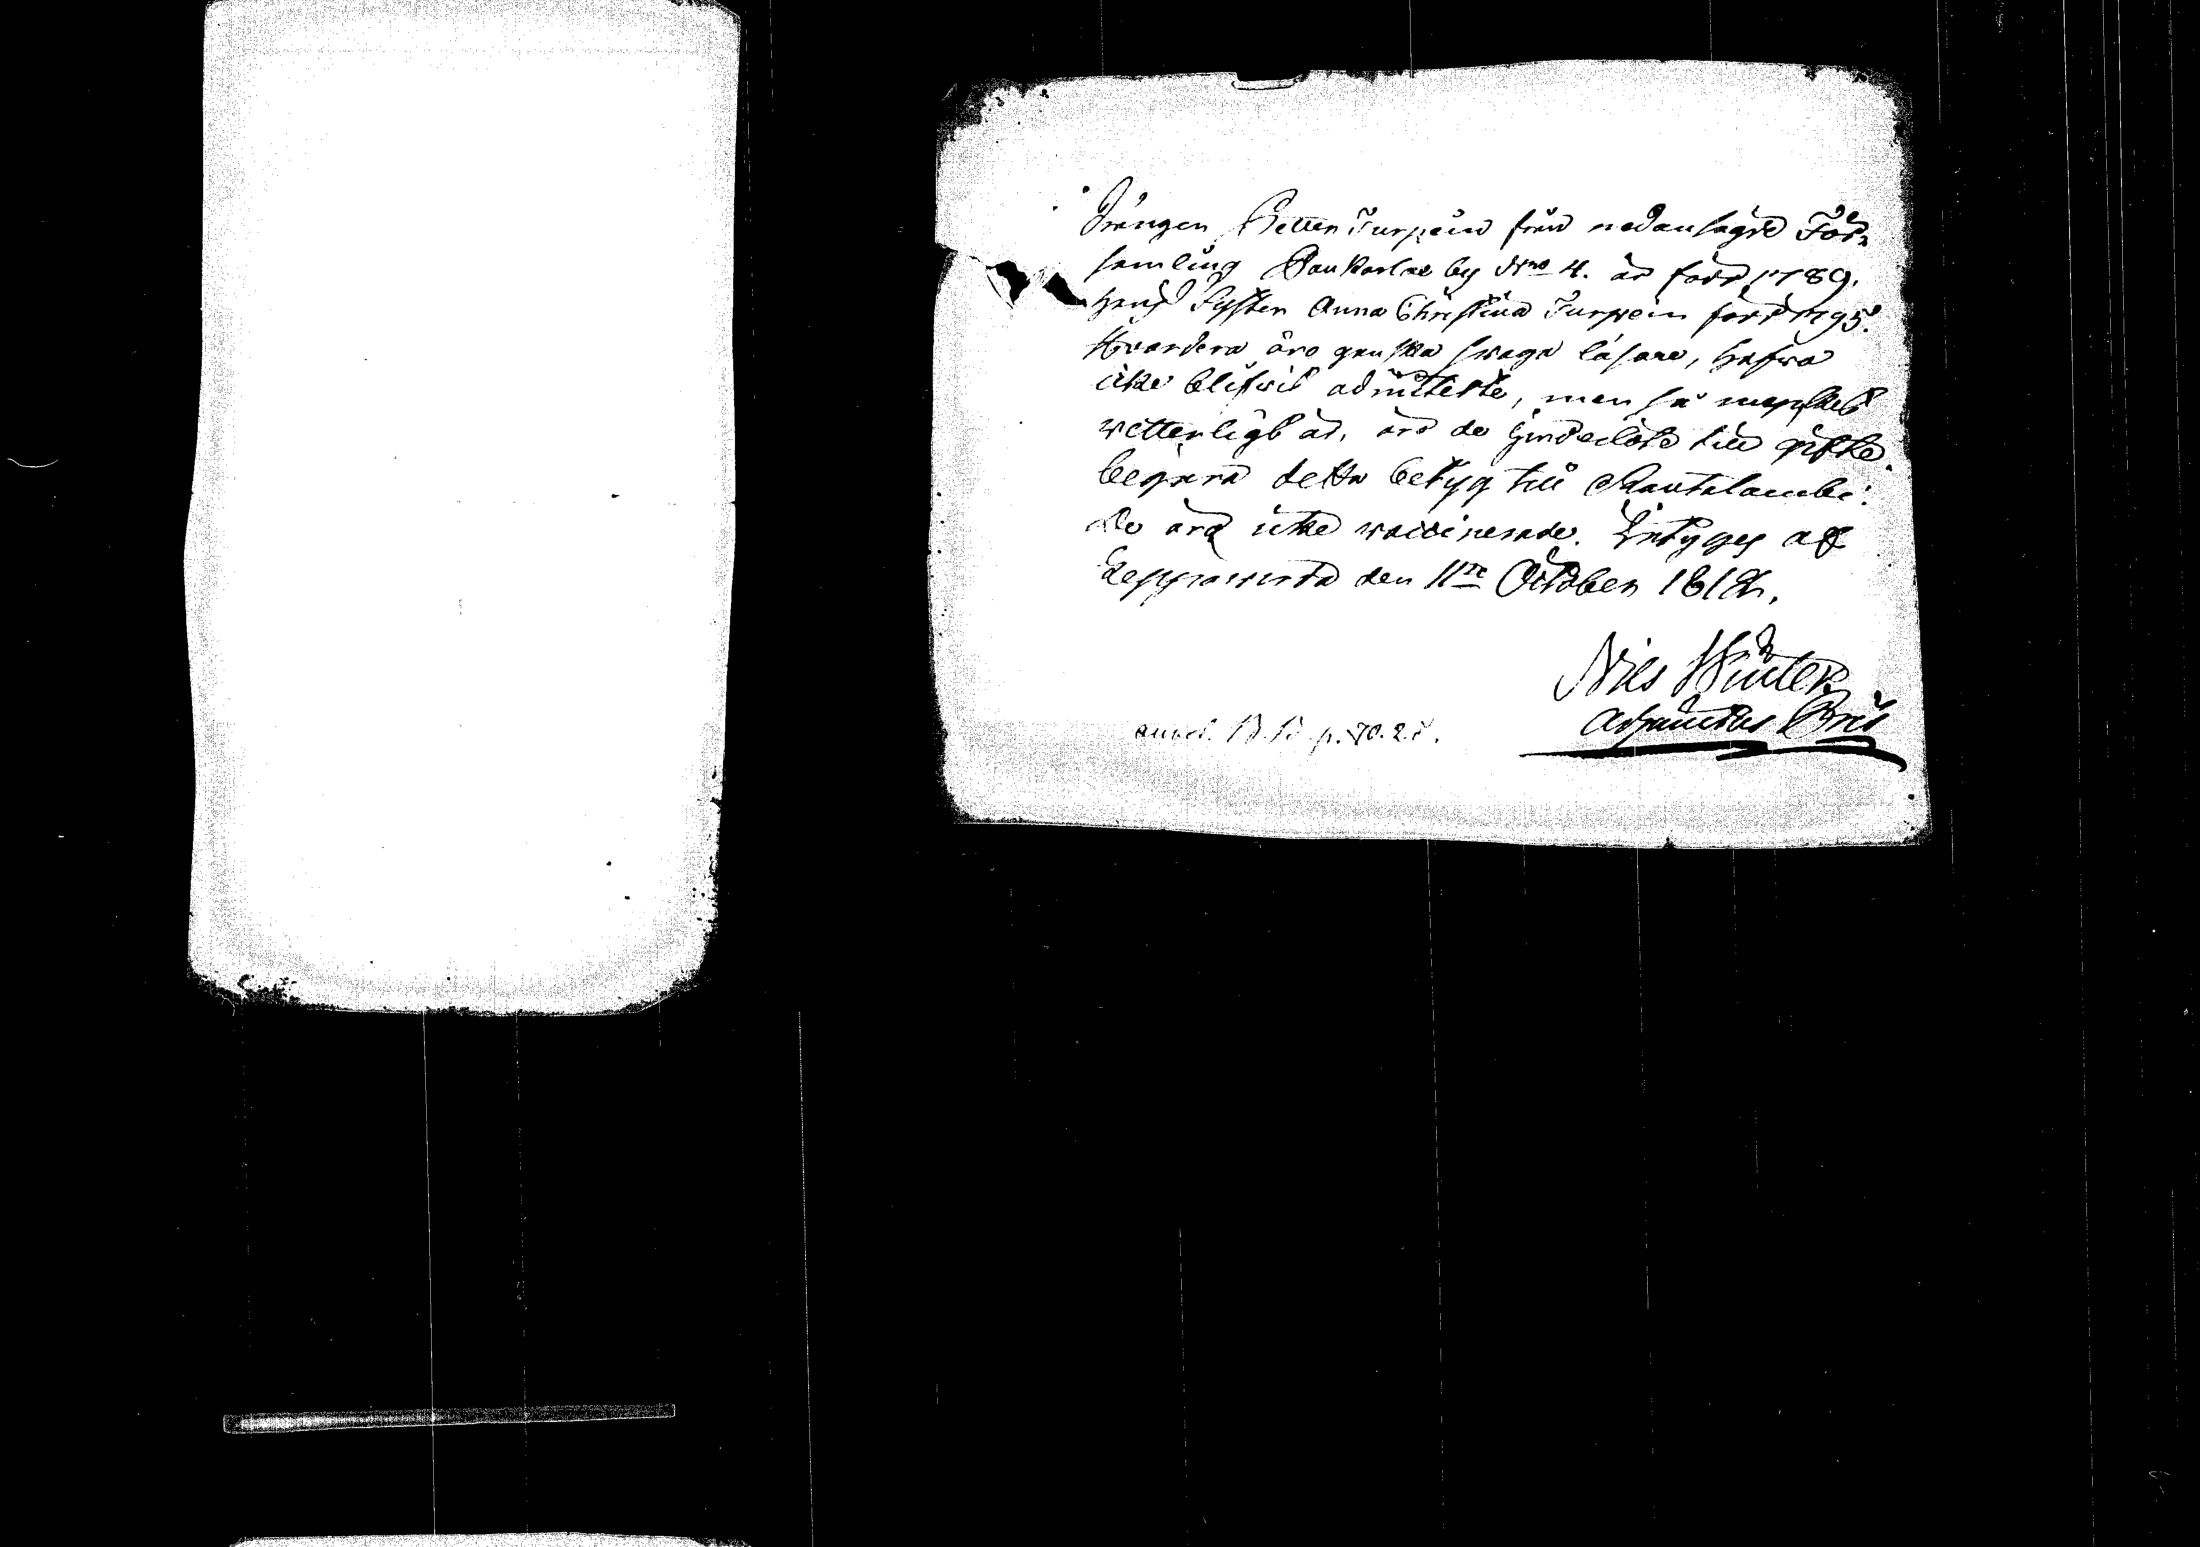 Drängen Petter Turpein från nedansagde För=
samling Paukarlax by Nro 4. är född 1789.
Hans Syster Anna Christina Turpein född 1795.
Hvardera äro ganska swaga läsare, hafwa
icke blifwit admitterte, men så mycket
wetterligt är, äro de hinderlöse till gifte
begära detta betyg till Rautalambi.
De äro icke waccinerade. Intyges af
Leppäwirta den 11te October 1812.
Nils Winter
Adjunctus
annot. p. 70. 28.